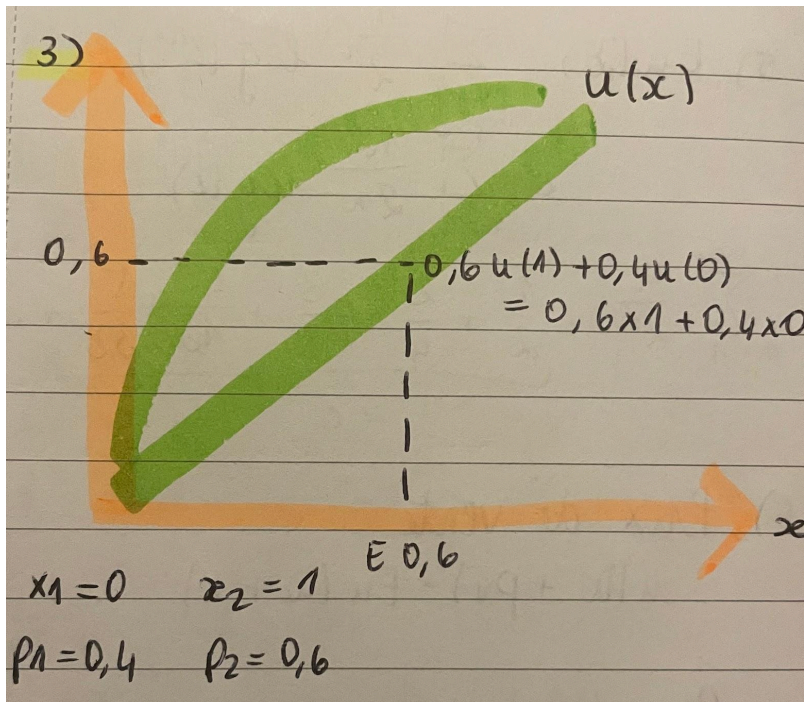 3)
u(x)
0,6
0,6 u(1) + 0,4 u(0)
= 0,6 x 1 + 0,4 x 0
x
E 0,6
x1 = 0 x2 = 1
p1 = 0,4 p2 = 0,6